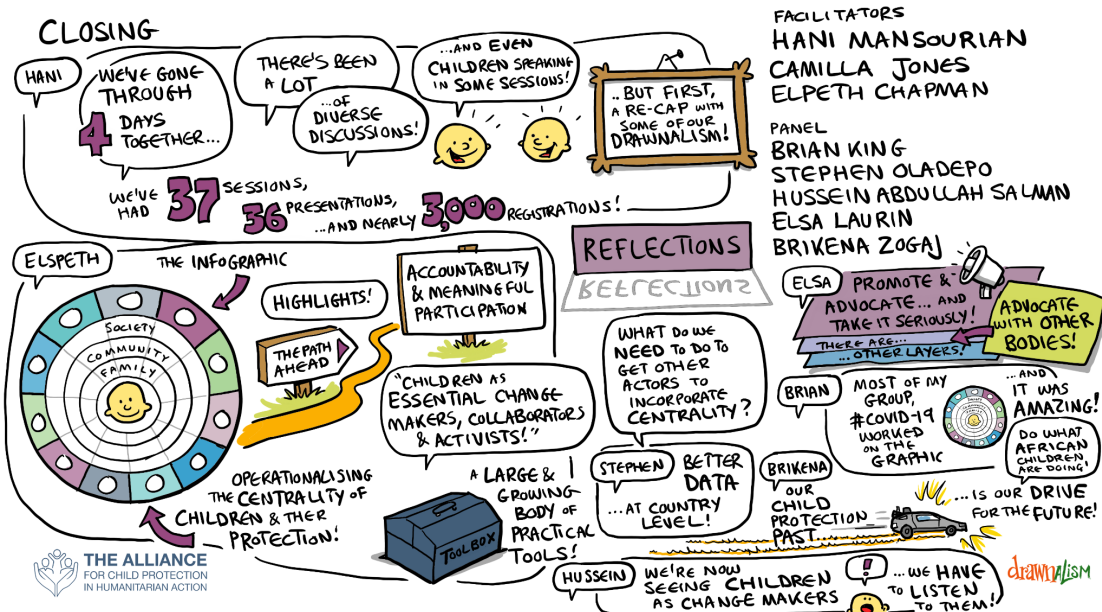 CLOSING
HANI
WE'VE GONE
THROUGH
4 DAYS
TOGETHER...
THERE'S BEEN
A LOT
...OF
DIVERSE
DISCUSSIONS!
...AND EVEN
CHILDREN SPEAKING
IN SOME SESSIONS!
..BUT FIRST,
A RE-CAP WITH
SOME OF OUR
DRAWNALISM!
WE'VE
HAD 37 SESSIONS,
36 PRESENTATIONS,
...AND NEARLY 3,000 REGISTRATIONS!
FACILITATORS
HANI MANSOURIAN
CAMILLA JONES
ELPETH CHAPMAN
PANEL
BRIAN KING
STEPHEN OLADEPO
HUSSEIN ABDULLAH SALMAN
ELSA LAURIN
BRIKENA ZOGAJ
ELSPETH
THE INFOGRAPHIC
SOCIETY
COMMUNITY
FAMILY
HIGHLIGHTS!
THE PATH
AHEAD
ACCOUNTABILITY
& MEANINGFUL
PARTICIPATION
"CHILDREN AS
ESSENTIAL CHANGE
MAKERS, COLLABORATORS
& ACTIVISTS!"
OPERATIONALISING
THE CENTRALITY OF
CHILDREN & THER
PROTECTION!
A LARGE &
GROWING
BODY OF
PRACTICAL
TOOLS!
TOOLBOX
REFLECTIONS
REFLECTIONS
WHAT DO WE
NEED TO DO TO
GET OTHER
ACTORS TO
INCORPORATE
CENTRALITY?
STEPHEN
BETTER
DATA
...AT COUNTRY
LEVEL!
ELSA
PROMOTE &
ADVOCATE... AND
TAKE IT SERIOUSLY!
THERE ARE...
...OTHER LAYERS!
ADVOCATE
WITH OTHER
BODIES!
BRIAN
MOST OF MY
GROUP,
#COVID-19
WORKED
ON THE
GRAPHIC
...AND
IT WAS
AMAZING!
DO WHAT
AFRICAN
CHILDREN
ARE DOING!
BRIKENA
OUR
CHILD
PROTECTION
PAST...
...IS OUR DRIVE
FOR THE FUTURE!
HUSSEIN
WE'RE NOW
SEEING CHILDREN
AS CHANGE MAKERS
!
...WE HAVE
TO LISTEN
TO THEM!
THE ALLIANCE
FOR CHILD PROTECTION
IN HUMANITARIAN ACTION
drawnalism